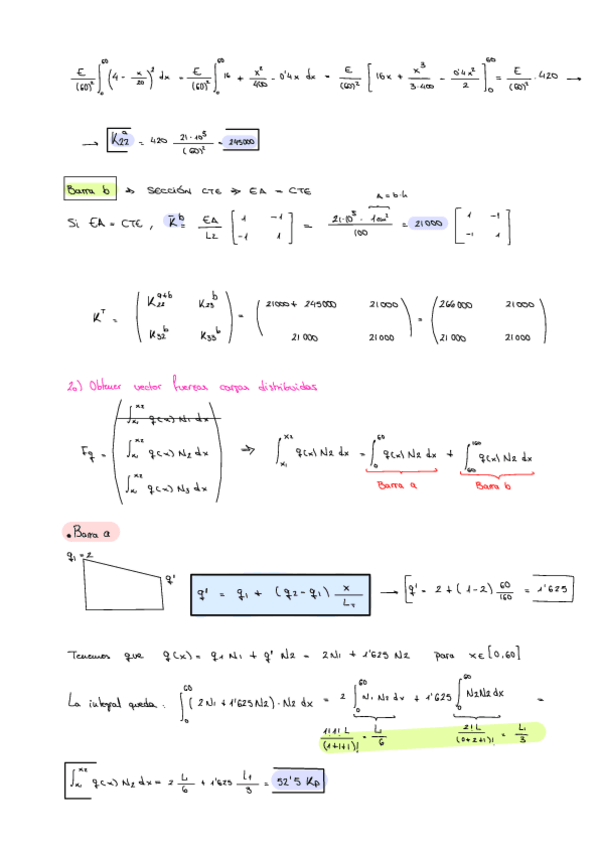 E/(60)² ∫₀⁶⁰ (4 - x/20)² dx = E/(60)² ∫₀⁶⁰ 16 + x²/400 - 0'4x dx = E/(60)² [16x + x³/3·400 - 0'4x²/2]₀⁶⁰ = E/(60)² · 420 →
→ K₂₂ᵃ = 420 21·10⁵/(60)² = 245000
Barra b → SECCIÓN CTE ⇒ EA = CTE
A = b·h
Si EA = CTE, K̄ᵇ = EA/L2 [1 -1; -1 1] = 21·10⁵ · 1cm²/100 = 21000 [1 -1; -1 1]
Kᵀ = (K₂₂ᵃ⁺ᵇ K₂₃ᵇ; K₃₂ᵇ K₃₃ᵇ) = (21000 + 245000 21000; 21000 21000) = (266000 21000; 21000 21000)
2o) Obtener vector fuerzas cargas distribuidas
Fq = (∫ₓ₁ˣ² q(x) N1 dx; ∫ₓ₁ˣ² q(x) N2 dx; ∫ₓ₁ˣ² q(x) N3 dx) ⇒ ∫ₓ₁ˣ² q(x) N2 dx = ∫₀⁶⁰ q(x) N2 dx + ∫₆₀¹⁶⁰ q(x) N2 dx
Barra a Barra b
• Barra a
q1 = 2
q'
q' = q1 + (q2 - q1) x/LT → q' = 2 + (1-2) 60/160 = 1'625
Tenemos que q(x) = q1 N1 + q' N2 = 2N1 + 1'625 N2 para x∈[0,60]
La integral queda: ∫₀⁶⁰ (2N1 + 1'625N2) · N2 dx = 2 ∫₀⁶⁰ N1 N2 dx + 1'625 ∫₀⁶⁰ N2N2 dx =
1!1! L/(1+1+1)! = L/6 2!L/(0+2+1)! = L1/3
∫ₓ₁ˣ² q(x) N2 dx = 2 L/6 + 1'625 L1/3 = 52'5 Kp